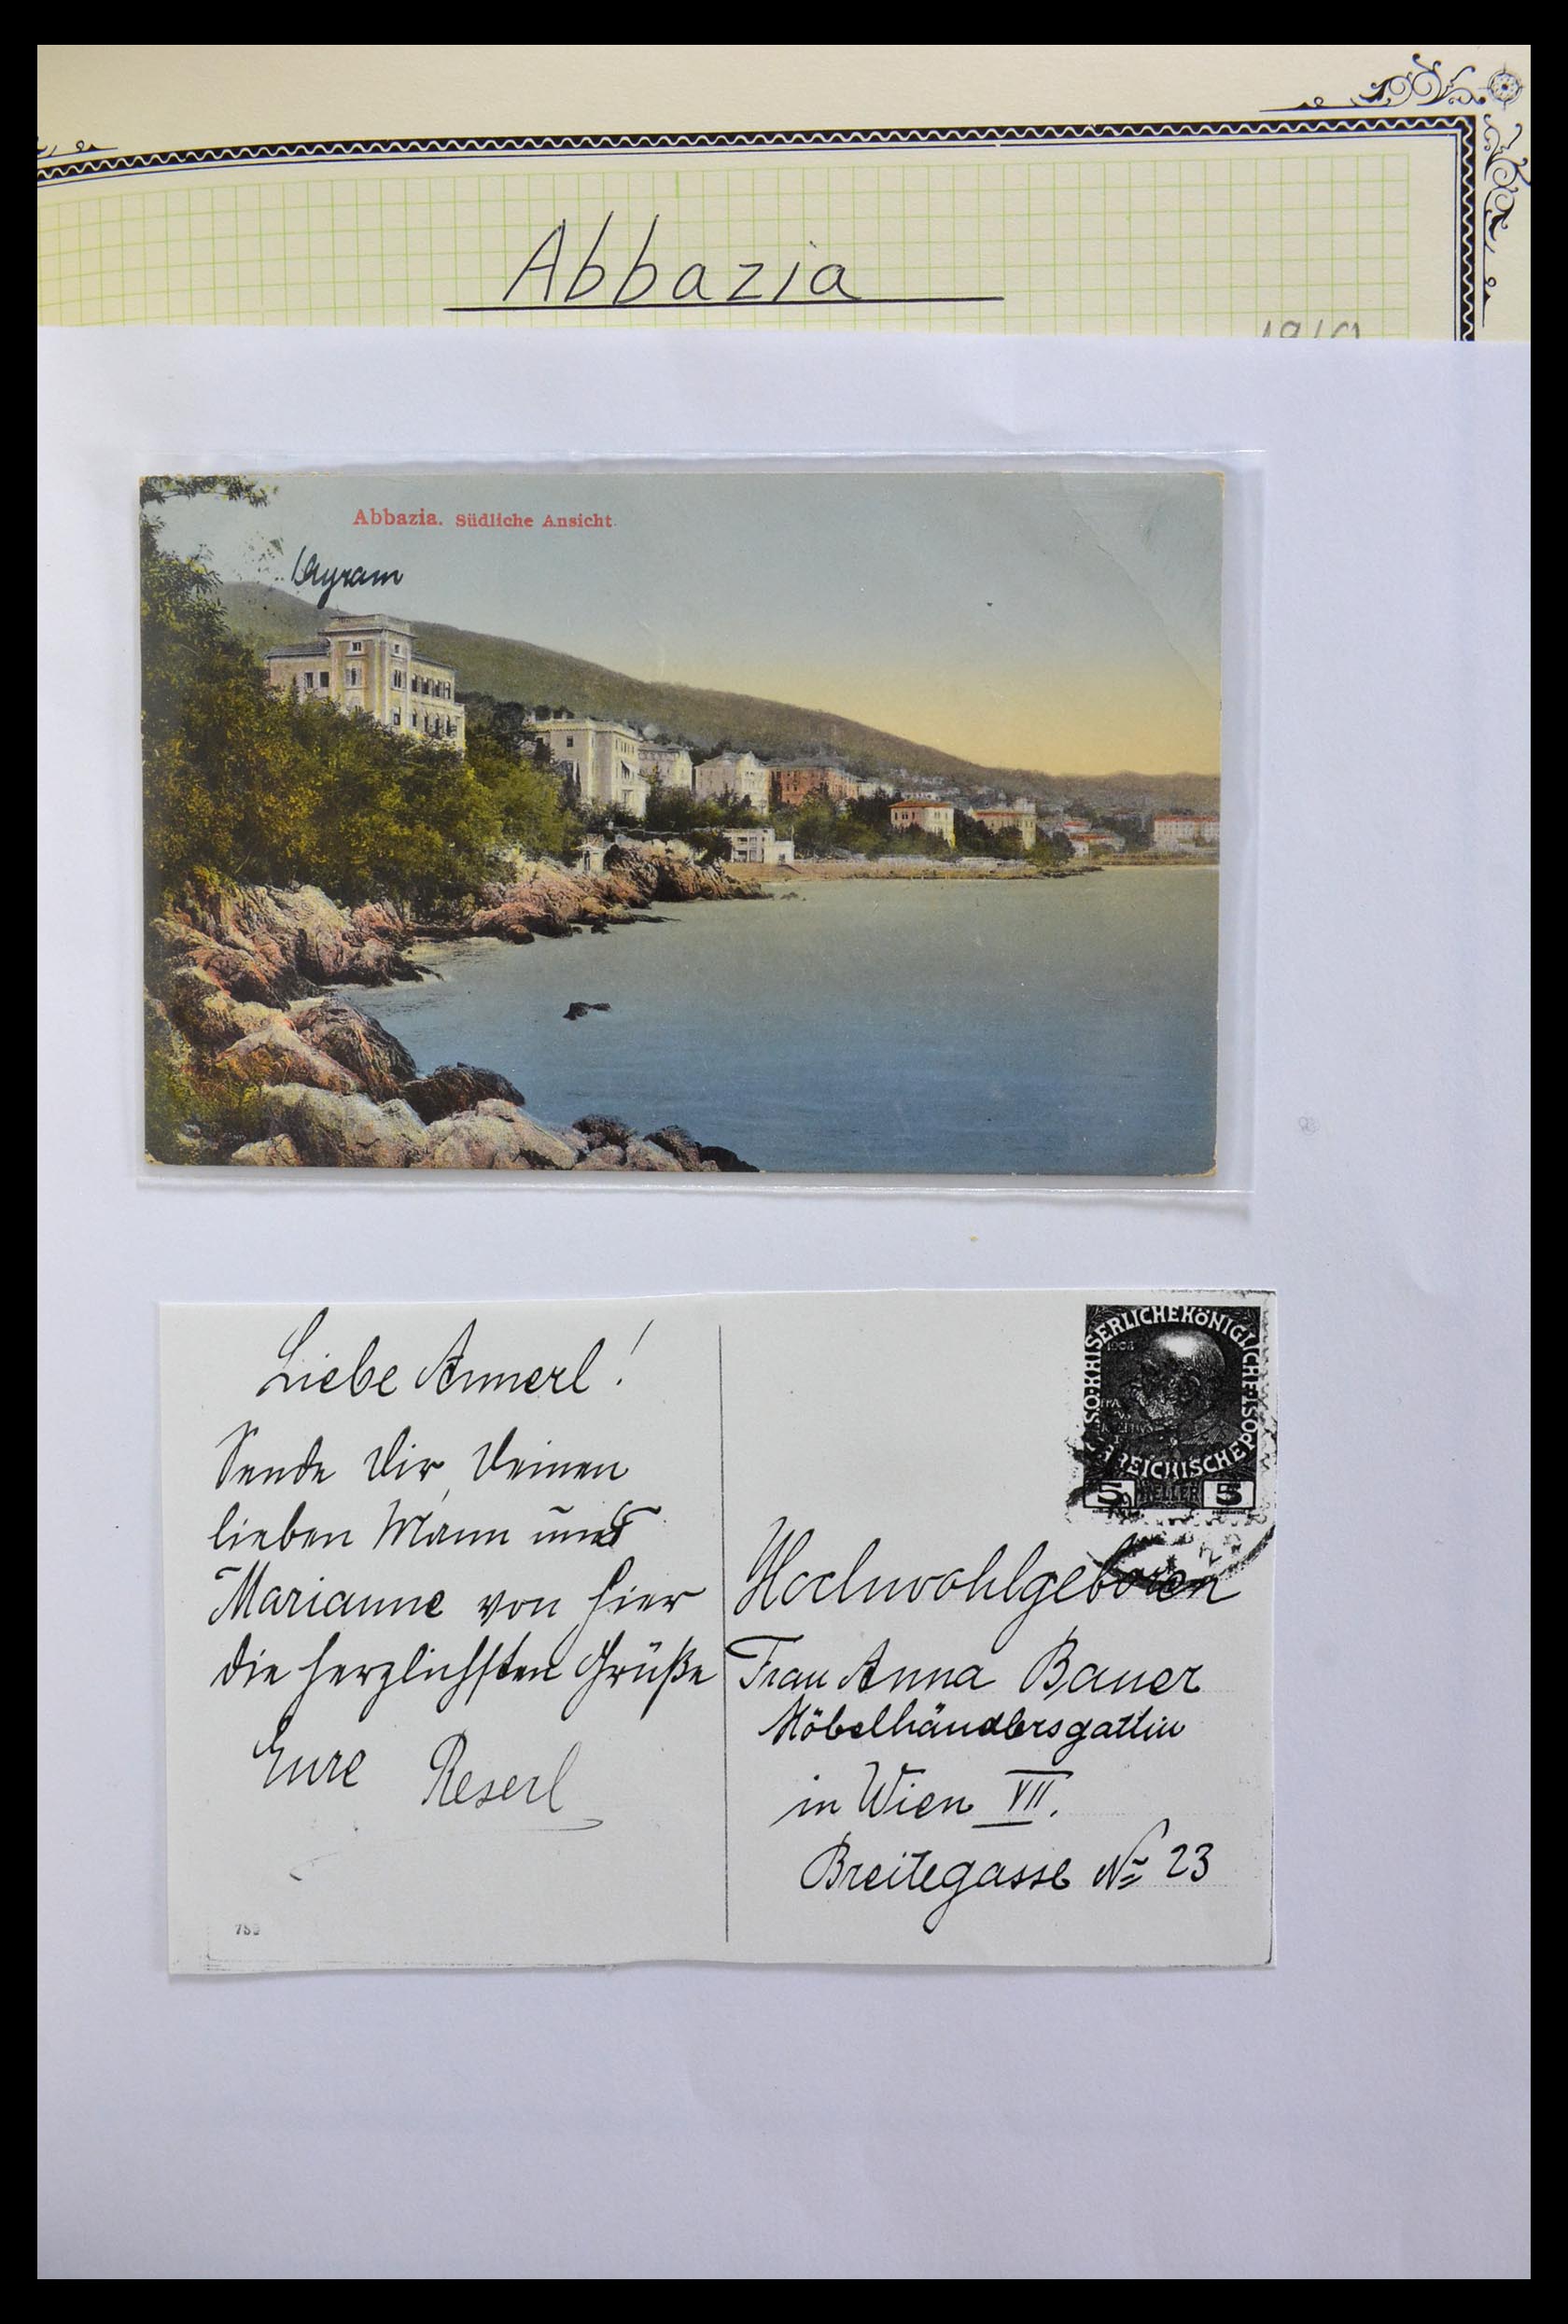 Abbazia
Abbazia. Südliche Ansicht.
Liebe Annerl!
Sende Dir, Deinen
lieben Mann und
Marianne von hier
die herzlichsten Grüße
Eure Reserl
KAISERLICHE KÖNIGLICHE ÖSTERREICHISCHE POST
1908
5 HELLER 5
Hochwohlgeboren
Frau Anna Bauer
Möbelhändlersgattin
in Wien VII.
Breitegasse № 23